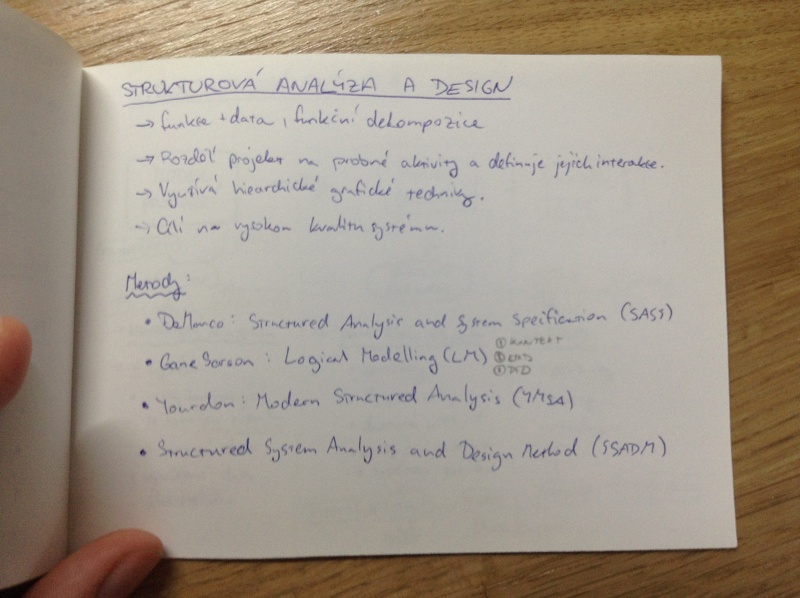 STRUKTUROVÁ ANALÝZA A DESIGN
→ funkce + data, funkční dekompozice
→ Rozdělí projekt na probné aktivity a definuje jejich interakce.
→ Využívá hiearchické grafické techniky.
→ Cílí na vysokou kvalitu systému.
Metody:
• DeMarco: Structured Analysis and System Specification (SASS)
• Gane Sarson: Logical Modelling (LM)
① KONTEXT
② ERD
③ DFD
• Yourdon: Modern Structured Analysis (YMSA)
• Structured System Analysis and Design Method (SSADM)